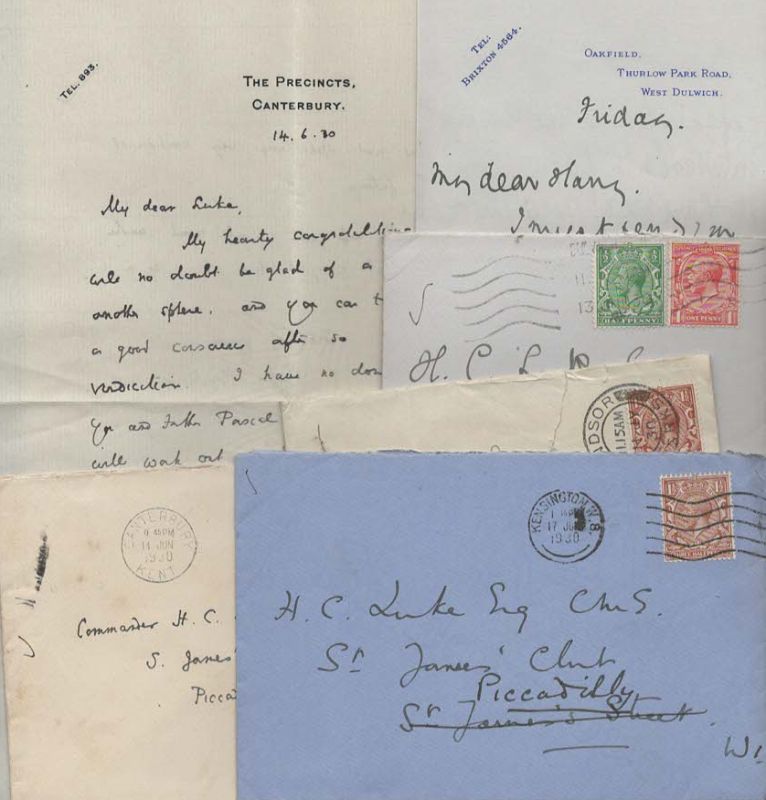 TEL. 893.
THE PRECINCTS,
CANTERBURY.
14.6.30
My dear Luke,
My hearty congratulations
will no doubt be glad of a
another sphere, and you can
a good conscience after so
vindication. I have no
you and Father Pascal
will work out
TEL:
BRIXTON 4564.
OAKFIELD,
THURLOW PARK ROAD,
WEST DULWICH.
Friday.
My dear Harry.
I must send
HALFPENNY
ONE PENNY
11
13
H. C. L
ADSOR
11.15AM
30
CANTERBURY
9 45PM
14 JUN
1930
KENT
Commander H. C.
S. James'
Picca
KENSINGTON. W.8.
17 JUN
1930
H. C. Luke Esq CMG.
St James' Club
Piccadilly
St James's Street.
W1